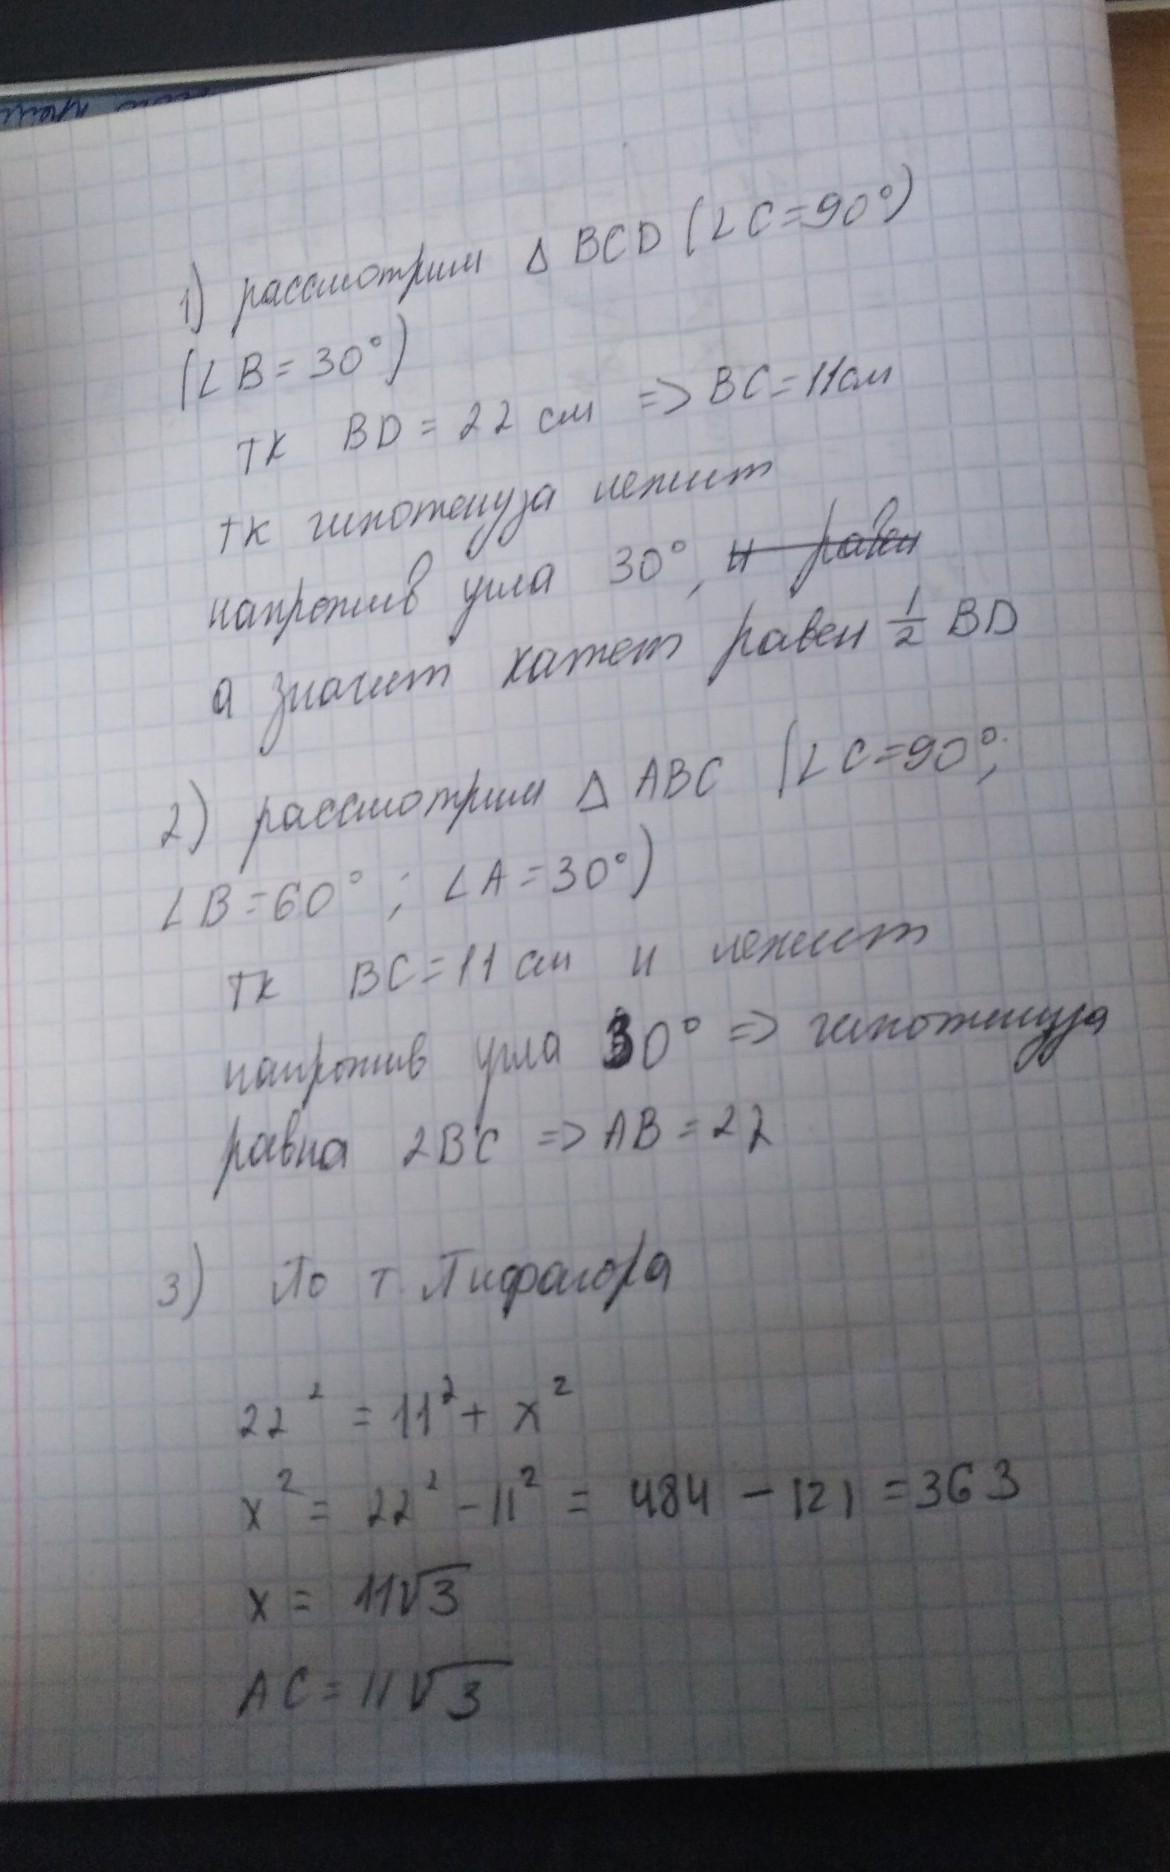 1) рассмотрим Δ BCD (∠C=90°)
(∠B=30°)
тк BD=22 см => BC=11см
тк гипотенуза лежит
напротив угла 30°, и равен
а значит катет равен 1/2 BD
2) рассмотрим Δ ABC (∠C=90°;
∠B=60°; ∠A=30°)
тк BC=11 см и лежит
напротив угла 30° => гипотенуза
равна 2BC => AB=22
3) По т. Пифагора
22² = 11² + x²
x² = 22² - 11² = 484 - 121 = 363
x = 11√3
AC = 11√3